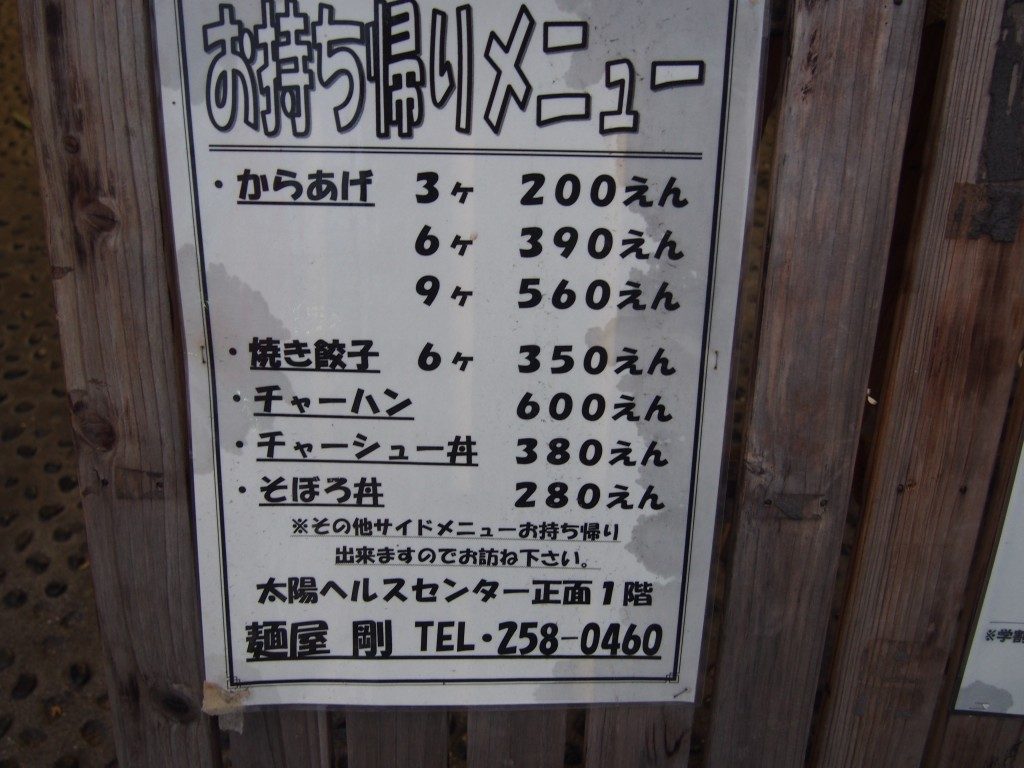 お持ち帰りメニュー
・からあげ 3ヶ 200えん
6ヶ 390えん
9ヶ 560えん
・焼き餃子 6ヶ 350えん
・チャーハン 600えん
・チャーシュー丼 380えん
・そぼろ丼 280えん
※その他サイドメニューお持ち帰り
出来ますのでお訪ね下さい。
太陽ヘルスセンター正面1階
麺屋 剛 TEL・258-0460
※学割